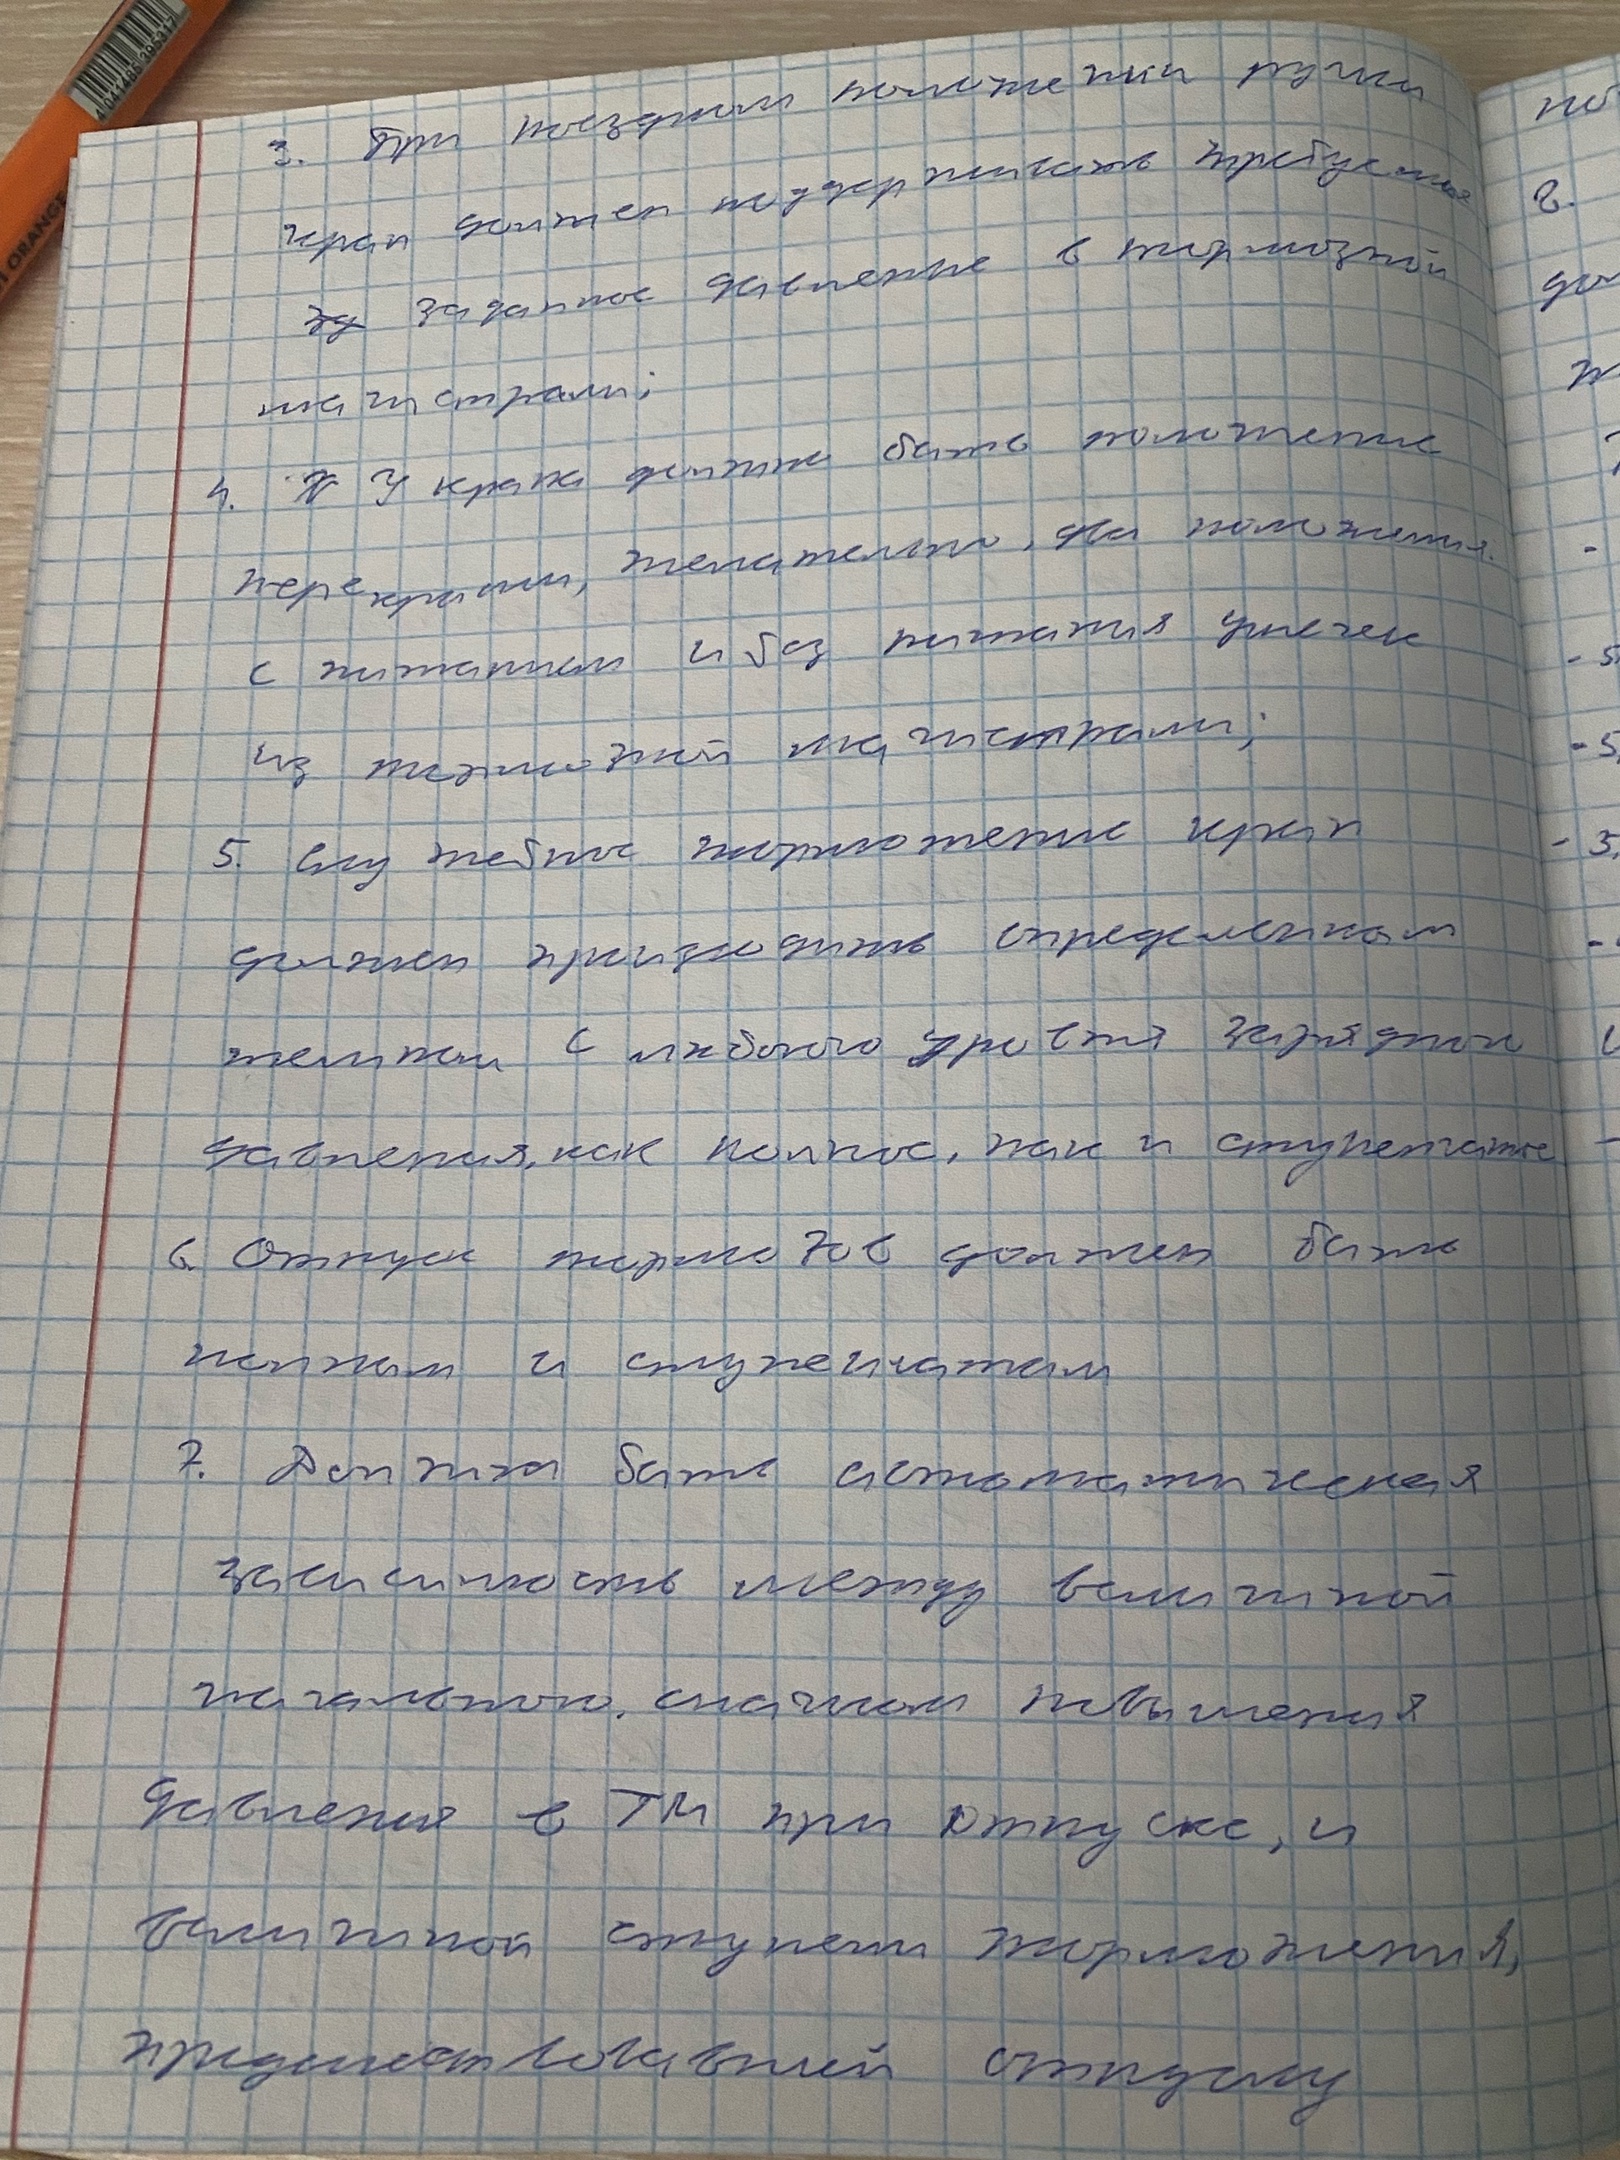 4041485 395317
ORANGE
3. При поездном положении ручки
кран должен поддерживать требуемое
зд заданное давление в тормозной
магистрали;
4. У крана должно быть положение
перекрыши, желательно, два положения.
с питанием и без питания утечек
из тормозной магистрали;
5. Служебное торможение кран
должен производить определенным
темпом с любого уровня зарядного
давления, как полное, так и ступенчатое
6. Отпуск тормозов должен быть
полным и ступенчатым
7. Должна быть автоматическая
зависимость между величиной
начального. скачком повышения
давления в ТМ при отпуске, и
величиной ступени торможения,
предшествовавшей отпуску
2.
- 5
- 5,
- 3,